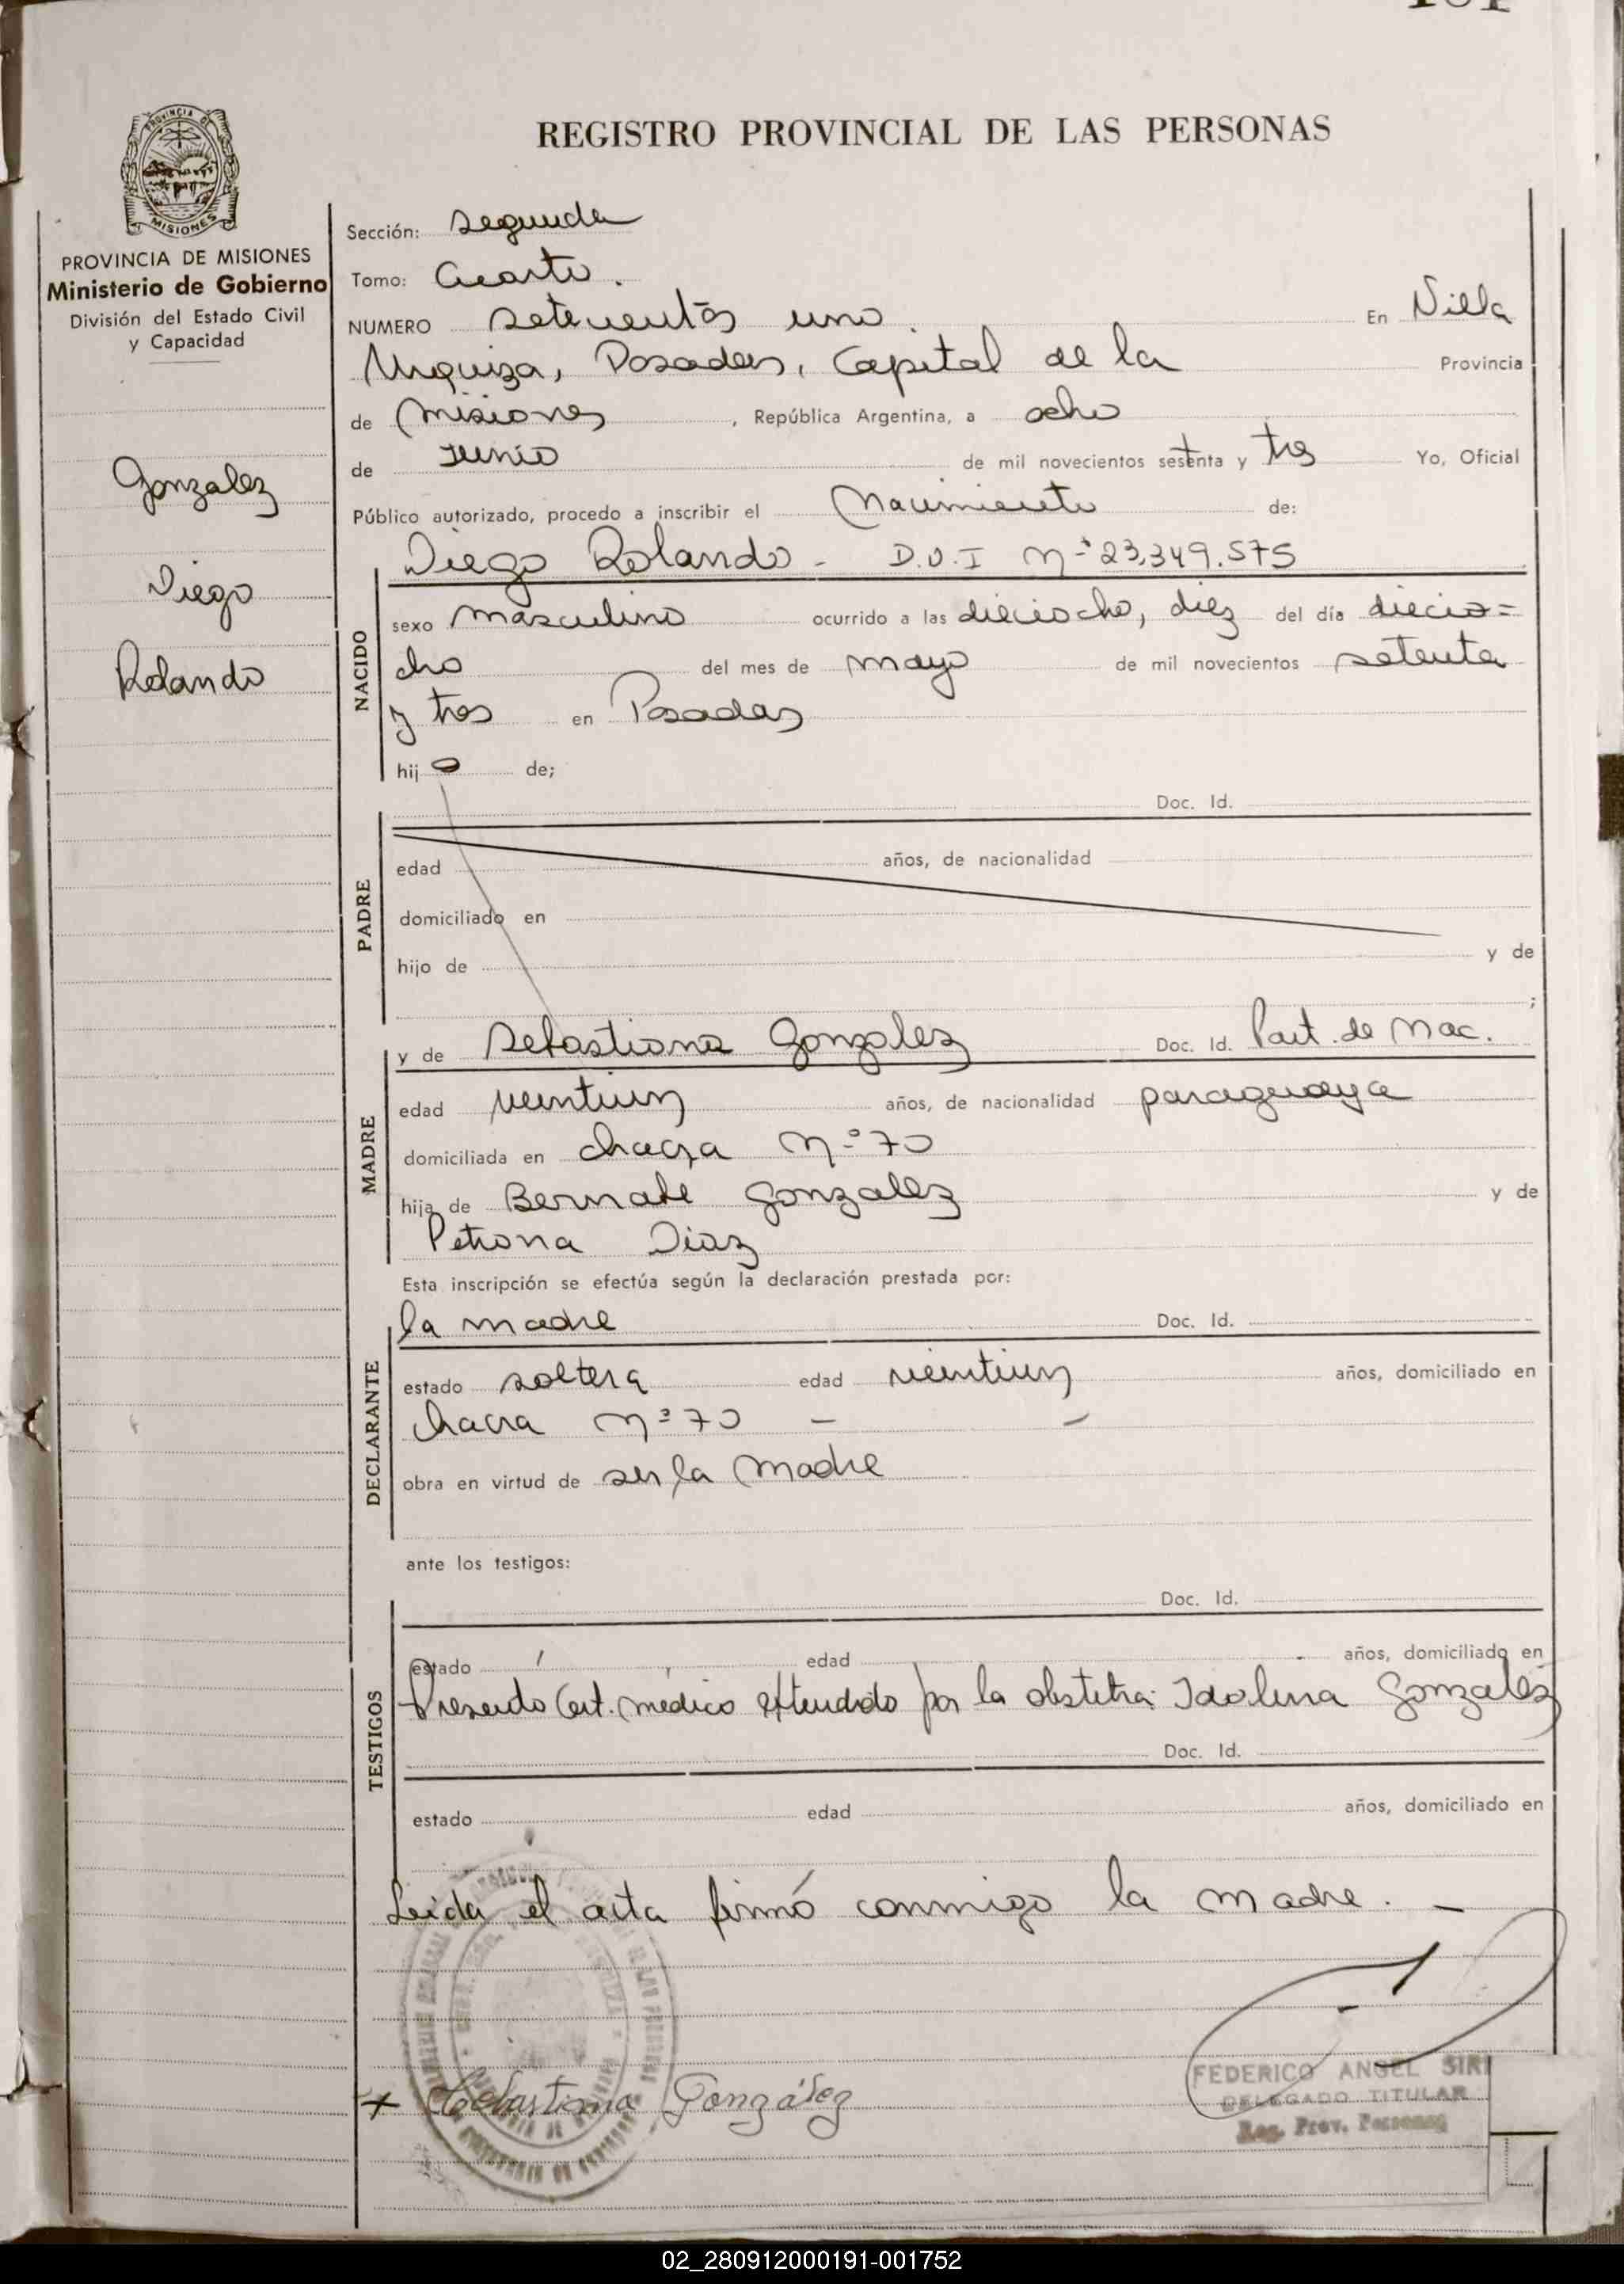 REGISTRO PROVINCIAL DE LAS PERSONAS
PROVINCIA DE MISIONES
Ministerio de Gobierno
División del Estado Civil
y Capacidad
Gonzalez
Diego
Rolando
Sección: Segunda
Tomo: Cuarto.
NUMERO setecientos uno. En Villa
Urquiza, Posadas, Capital de la Provincia
de Misiones, República Argentina, a ocho
de Junio de mil novecientos setenta y tres Yo, Oficial
Público autorizado, procedo a inscribir el Nacimiento de:
Diego Rolando - D.U.I Nº 23,349.575
NACIDO
sexo masculino ocurrido a las dieciocho, diez del día diecio=
cho del mes de mayo de mil novecientos setenta
y tres en Posadas
hijo de;
Doc. Id.
PADRE
edad años, de nacionalidad
domiciliado en
hijo de y de
;
MADRE
y de Sebastiana Gonzalez Doc. Id. Part. de Nac.
edad veintiun años, de nacionalidad paraguaya
domiciliada en chacra Nº 70
hija de Bernabe Gonzalez y de
Petrona Diaz
Esta inscripción se efectúa según la declaración prestada por:
la madre Doc. Id.
DECLARANTE
estado soltera edad veintiun años, domiciliado en
chacra Nº 70 - -
obra en virtud de ser la madre
ante los testigos:
Doc. Id.
TESTIGOS
estado edad años, domiciliado en
Presentó Cert. médico extendido por la obstetra Idolina Gonzalez
Doc. Id.
estado edad años, domiciliado en
Leida el acta firmó conmigo la madre. -
FEDERICO ANGEL SIRI
DELEGADO TITULAR
Reg. Prov. Personas
+ Sebastiana González
02_280912000191-001752